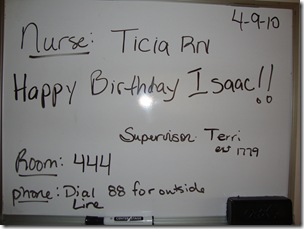 4-9-10
Nurse: Ticia RN
Happy Birthday Isaac!!
Supervisor Terri
ext 1779
Room: 444
phone: Dial 88 for outside
Line